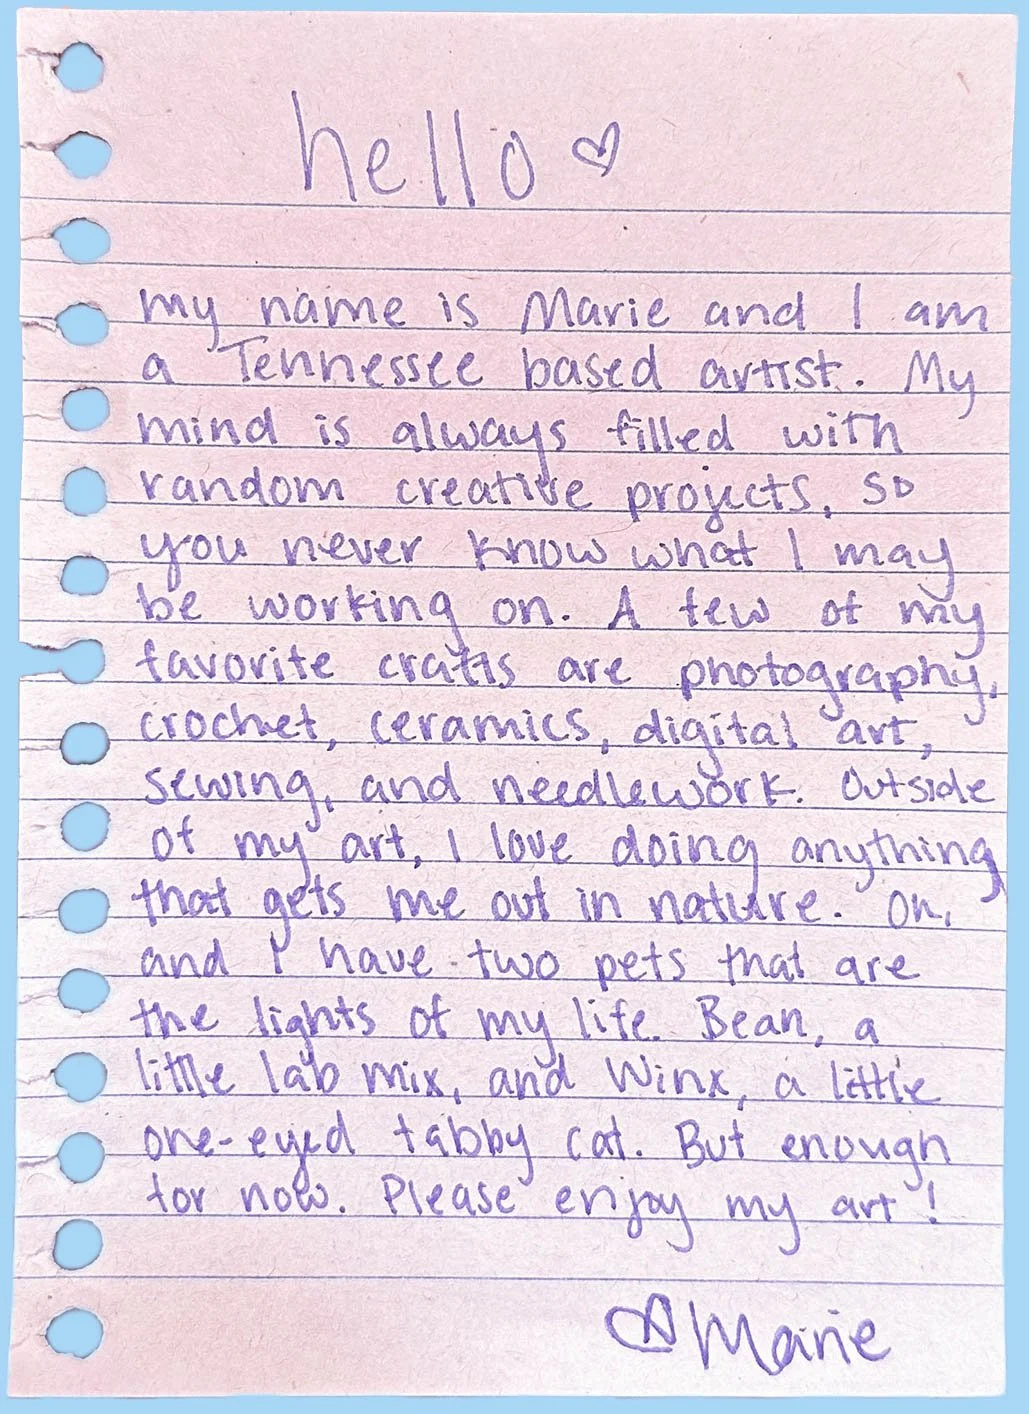 hello ♡
my name is Marie and I am
a Tennessee based artist. My
mind is always filled with
random creative projects, so
you never know what I may
be working on. A few of my
favorite crafts are photography,
crochet, ceramics, digital art,
sewing, and needlework. Outside
of my art, I love doing anything
that gets me out in nature. Oh,
and I have two pets that are
the lights of my life. Bean, a
little lab mix, and Winx, a little
one-eyed tabby cat. But enough
for now. Please enjoy my art!
♡Marie